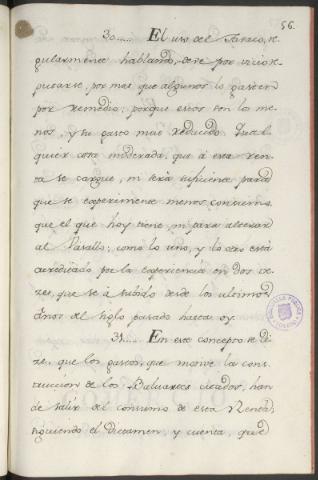 56.
30..... El uso del Tavaco, re-
gularmente hablando, deve por vicio re-
putarse, por mas que algunos lo gasten
por remedio; porque estos son lo me-
nos, y su gasto mui reducido. Qual-
quier cosa moderada, que á esta ren-
ta se cargue, ni será suficiente para
que se experimente menos consumo,
que el que hoy tiene, ni para atrasar
al Vasallo; como lo uno, y lo otro está
acreditado por la experiencia en dos ve-
zes, que se á subido desde los ultimos
años del siglo pasado hasta oy.
31..... En este concepto se di-
ze, que los gastos, que motive la cons-
truccion de los Baluartes citados, han
de salir del consumo de esta Renta,
siguiendo el Dictamen, y cuenta, que
BIBLIOTECA PUBLICA